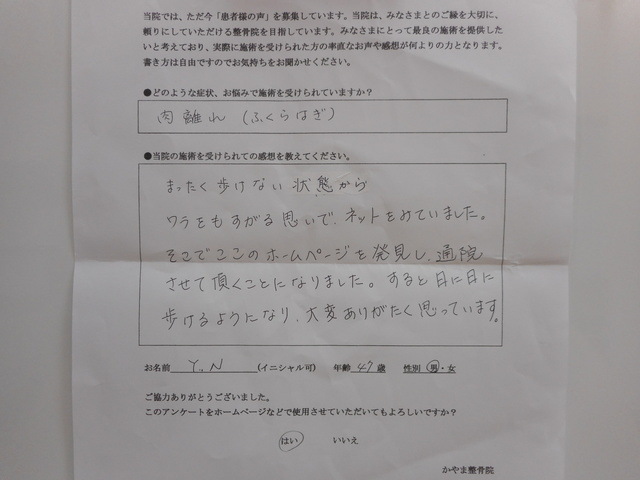 当院では、ただ今「患者様の声」を募集しています。当院は、みなさまとのご縁を大切に、
頼りにしていただける整骨院を目指しています。みなさまにとって最良の施術を提供した
いと考えており、実際に施術を受けられた方の率直なお声や感想が何よりの力となります。
書き方は自由ですのでお気持ちをお聞かせください。
●どのような症状、お悩みで施術を受けられていますか？
肉離れ（ふくらはぎ）
●当院の施術を受けられての感想を教えてください。
まったく歩けない状態から
ワラをもすがる思いで、ネットをみていました。
そこでここのホームページを発見し、通院
させて頂くことになりました。すると日に日に
歩けるようになり、大変ありがたく思っています。
お名前 Y.N （イニシャル可） 年齢 47 歳 性別 男・女
ご協力ありがとうございました。
このアンケートをホームページなどで使用させていただいてもよろしいですか？
はい いいえ
かやま整骨院